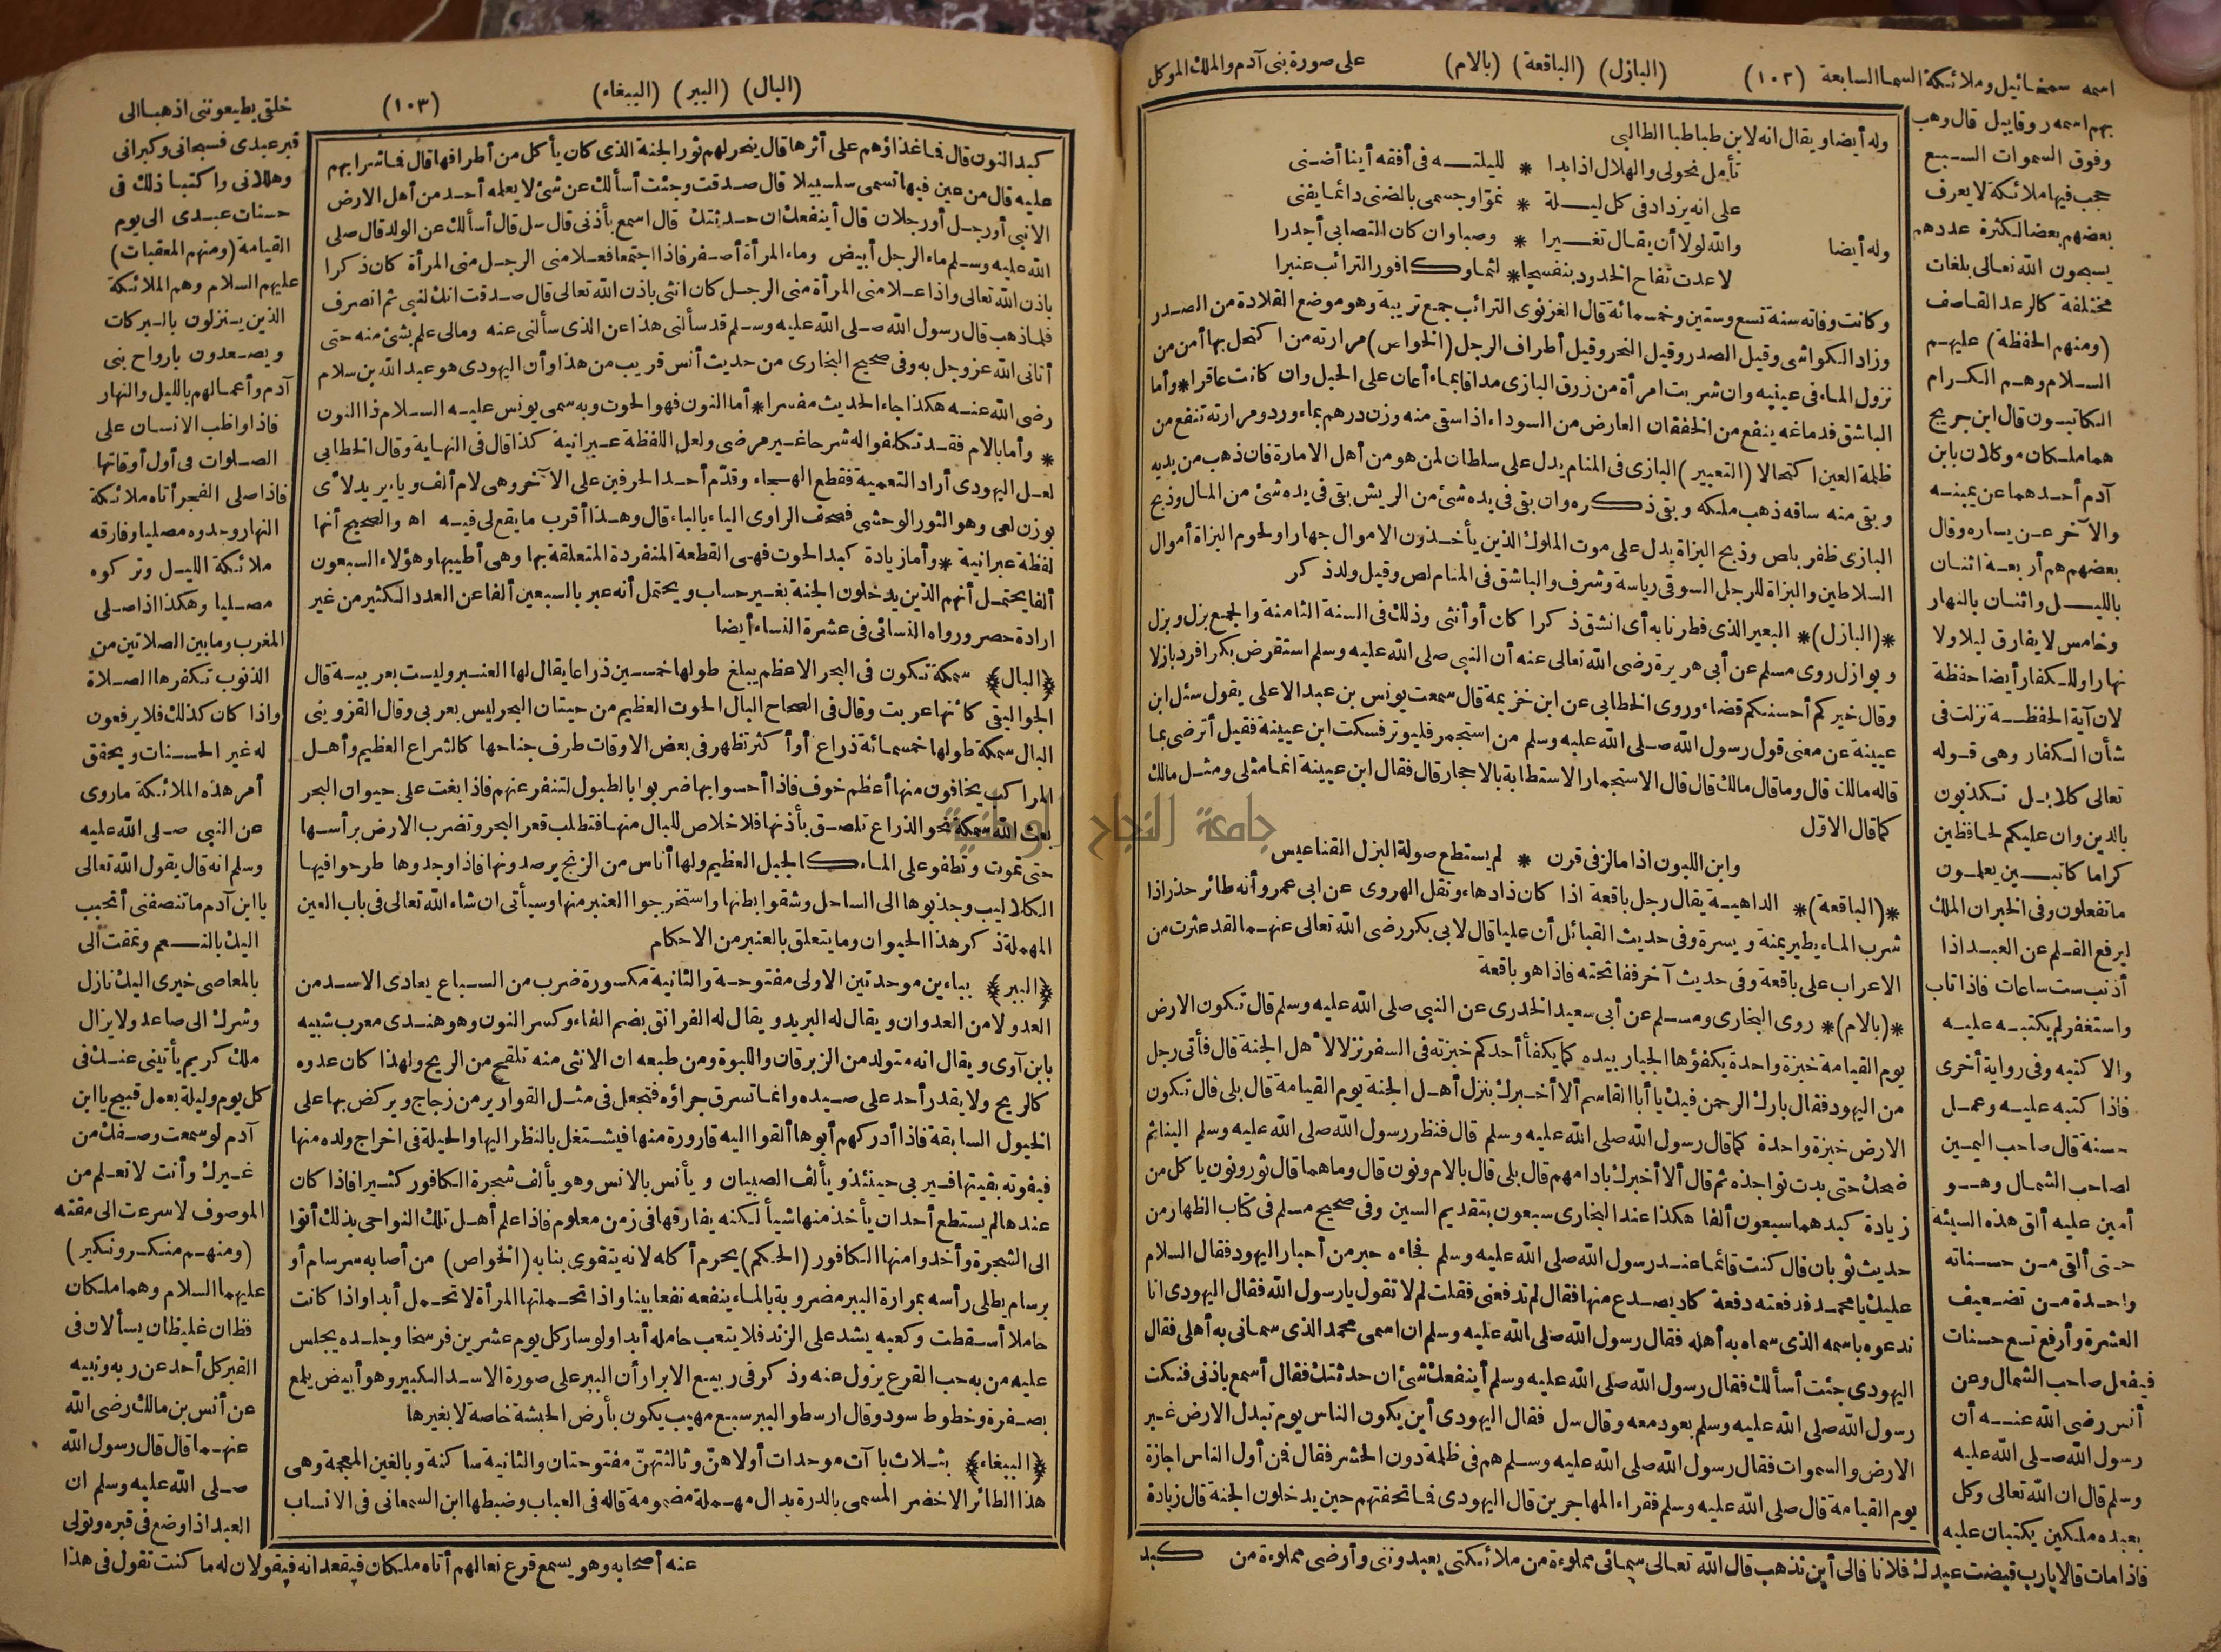 اسمه سمخائيل وملائكة السماء السابعة (١٠٢) (البازل) (الباقعة) (بالام) على صورة بنى آدم والملك الموكل
وله أيضا ويقال انه لابن طباطبا الطالبي
تأمل نحولى والهلال اذا بدا * لليلته فى أفقه أينا أضنى
على انه يزداد فى كل ليلة * نموّا وجسمى بالضنى دائما يفنى
وله أيضا والله لولا أن يقال تغيرا * وصبا وان كان التصابى أجدرا
لاعدت تفاح الخدود بنفسجا * لثما وكافور الترائب عنبرا
وكانت وفاته سنة تسع وستين وخمسمائة قال الغزنوى الترائب جمع تريبة وهو موضع القلادة من الصدر
وزاد الكواشى وقيل الصدر وقيل النحر وقيل أطراف الرجل (الخواص) مرارته من اكتحل بها أمن من
نزول الماء فى عينيه وان شربت امرأة من زرق البازى مدافا بماء أعان على الحبل وان كانت عاقرا * وأما
الباشق فدماغه ينفع من الخفقان العارض من السوداء اذا سقى منه وزن درهم بماء ورد ومرارته تنفع من
ظلمة العين اكتحالا (التعبير) البازى فى المنام يدل على سلطان لمن هو من أهل الامارة فان ذهب من يديه
وبقى منه ساقه ذهب ملكه وبقى ذكره وان بقى فى يده شئ من الريش بقى فى يده شئ من المال وذبح
البازى ظفر بلص وذبح البزاة يدل على موت الملوك الذين يأخذون الاموال جهارا ولحوم البزاة أموال
السلاطين والبزاة للرجل السوقى رياسة وشرف والباشق فى المنام لص وقيل ولد ذكر
*(البازل)* البعير الذى فطر نابه أى انشق ذكرا كان أو أنثى وذلك فى السنة الثامنة والجمع بزل وبزل
وبوازل روى مسلم عن أبى هريرة رضى الله تعالى عنه أن النبى صلى الله عليه وسلم استقرض بكرا فرد بازلا
وقال خيركم أحسنكم قضاء وروى الخطابى عن ابن خزيمة قال سمعت يونس بن عبد الاعلى يقول سئل ابن
عيينة عن معنى قول رسول الله صلى الله عليه وسلم من استجمر فليوتر فسكت ابن عيينة فقيل أترضى بما
قاله مالك قال وما قال مالك قال قال الاستجمار الاستطابة بالاحجار قال فقال ابن عيينة انما مثلى ومثل مالك
كما قال الاوّل
وابن اللبون اذا مالز فى قرن * لم يستطع صولة البزل القناعيس
*(الباقعة)* الداهية يقال رجل باقعة اذا كان ذا دهاء ونقل الهروى عن ابى عمرو أنه طائر حذر اذا
شرب الماء يطير يمنة ويسرة وفى حديث القبائل أن عليا قال لابى بكر رضى الله تعالى عنهما لقد عثرت من
الاعراب على باقعة وفى حديث آخر ففاتحته فاذا هو باقعة
*(بالام)* روى البخارى ومسلم عن أبى سعيد الخدرى عن النبى صلى الله عليه وسلم قال تكون الارض
يوم القيامة خبزة واحدة يكفؤها الجبار بيده كما يكفأ أحدكم خبزته فى السفر نزلا لأهل الجنة قال فأتى رجل
من اليهود فقال بارك الرحمن فيك يا أبا القاسم ألا أخبرك بنزل أهل الجنة يوم القيامة قال بلى قال تكون
الارض خبزة واحدة كما قال رسول الله صلى الله عليه وسلم قال فنظر رسول الله صلى الله عليه وسلم الينا ثم
ضحك حتى بدت نواجذه ثم قال ألا أخبرك بادامهم قال بلى قال بالام ونون قال وما هما قال ثور ونون يأكل من
زيادة كبدهما سبعون ألفا هكذا عند البخارى سبعون بتقديم السين وفى صحيح مسلم فى كتاب الظهار من
حديث ثوبان قال كنت قائما عند رسول الله صلى الله عليه وسلم فجاءه حبر من أحبار اليهود فقال السلام
عليك يا محمد فدفعته دفعة كاد يصدع منها فقال لم تدفعنى فقلت لم لا تقول يا رسول الله فقال اليهودى انا
ندعوه باسمه الذى سماه به أهله فقال رسول الله صلى الله عليه وسلم ان اسمى محمد الذى سمانى به أهلى فقال
اليهودى جئت أسألك فقال رسول الله صلى الله عليه وسلم أينفعك شئ ان حدثتك فقال أسمع باذنى فنكت
رسول الله صلى الله عليه وسلم بعود معه وقال سل فقال اليهودى أين يكون الناس يوم تبدل الارض غير
الارض والسموات فقال رسول الله صلى الله عليه وسلم هم فى ظلمة دون الحشر فقال فمن أول الناس اجازة
يوم القيامة قال صلى الله عليه وسلم فقراء المهاجرين قال اليهودى فما تحفتهم حين يدخلون الجنة قال زيادة
كبد
بهم اسمه روقاييل قال وهب
وفوق السموات السبع
حجب فيها ملائكة لا يعرف
بعضهم بعضا لكثرة عددهم
يسبحون الله تعالى بلغات
مختلفة كالرعد القاصف
(ومنهم الحفظة) عليهم
السلام وهم الكرام
الكاتبون قال ابن جريج
هما ملكان موكلان بابن
آدم أحدهما عن يمينه
والآخر عن يساره وقال
بعضهم هم أربعة اثنان
بالليل واثنان بالنهار
وخامس لا يفارق ليلا ولا
نهارا وللكفار أيضا حفظة
لان آية الحفظة نزلت فى
شأن الكفار وهى قوله
تعالى كلا بل تكذبون
بالدين وان عليكم لحافظين
كراما كاتبين يعلمون
ما تفعلون وفى الخبر ان الملك
ليرفع القلم عن العبد اذا
أذنب ست ساعات فاذا تاب
واستغفر لم يكتبه عليه
والا كتبه وفى رواية أخرى
فاذا كتبه عليه وعمل
حسنة قال صاحب اليمين
لصاحب الشمال وهو
أمين عليه ألق هذه السيئة
حتى ألقى من حسناته
واحدة من تضعيف
العشرة وأرفع تسع حسنات
فيفعل صاحب الشمال وعن
أنس رضى الله عنه أن
رسول الله صلى الله عليه
وسلم قال ان الله تعالى وكل
بعبده ملكين يكتبان عليه
فاذا مات قالا يا رب قبضت عبدك فلانا فالى أين نذهب قال الله تعالى سمائى مملوءة من ملائكتى يعبدوننى وأرضى مملوءة من
(البال) (الببر) (الببغاء) (١٠٣)
كبد النون قال فما غذاؤهم على أثرها قال ينحر لهم ثور الجنة الذى كان يأكل من أطرافها قال فما شرابهم
عليه قال من عين فيها تسمى سلسبيلا قال صدقت وجئت أسألك عن شئ لا يعلمه أحد من أهل الارض
الا نبى أو رجل أو رجلان قال أينفعك ان حدثتك قال اسمع بأذنى قال سل قال أسألك عن الولد قال صلى
الله عليه وسلم ماء الرجل أبيض وماء المرأة أصفر فاذا اجتمعا فعلا منى الرجل منى المرأة كان ذكرا
باذن الله تعالى واذا علا منى المرأة منى الرجل كان انثى باذن الله تعالى قال صدقت انك لنبى ثم انصرف
فلما ذهب قال رسول الله صلى الله عليه وسلم قد سألنى هذا عن الذى سألنى عنه ومالى علم بشئ منه حتى
أتانى الله عز وجل به وفى صحيح البخارى من حديث أنس قريب من هذا وأن اليهودى هو عبد الله بن سلام
رضى الله عنه هكذا جاء الحديث مفسرا * أما النون فهو الحوت وبه سمى يونس عليه السلام ذا النون
* وأما بالام فقد تكلفوا له شرحا غير مرضى ولعل اللفظة عبرانية كذا قال فى النهاية وقال الخطابى
لعل اليهودى أراد التعمية فقطع الهجاء وقدّم أحد الحرفين على الآخر وهى لام ألف وياء يريد لأى
بوزن لعى وهو الثور الوحشى فصحف الراوى الياء بالباء قال وهذا أقرب ما يقع لى فيه اه والصحيح أنها
لفظة عبرانية * وأما زيادة كبد الحوت فهى القطعة المنفردة المتعلقة بها وهى أطيبها وهؤلاء السبعون
ألفا يحتمل أنهم الذين يدخلون الجنة بغير حساب ويحتمل أنه عبر بالسبعين ألفا عن العدد الكثير من غير
ارادة حصر ورواه النسائى فى عشرة النساء أيضا
﴿البال﴾ سمكة تكون فى البحر الاعظم يبلغ طولها خمسين ذراعا يقال لها العنبر وليست بعربية قال
الجواليقى كأنها عربت وقال فى الصحاح البال الحوت العظيم من حيتان البحر ليس بعربى وقال القزوينى
البال سمكة طولها خمسمائة ذراع أو أكثر تظهر فى بعض الاوقات طرف جناحها كالشراع العظيم وأهل
المراكب يخافون منها أعظم خوف فاذا أحسوا بها ضربوا بالطبول لتنفر عنهم فاذا بغت على حيوان البحر
بعث الله سمكة نحو الذراع تلصق بأذنها فلا خلاص للبال منها فتطلب قعر البحر وتضرب الارض برأسها
حتى تموت وتطفو على الماء كالجبل العظيم ولها أناس من الزنج يرصدونها فاذا وجدوها طرحوا فيها
الكلاليب وجذبوها الى الساحل وشقوا بطنها واستخرجوا العنبر منها وسيأتى ان شاء الله تعالى فى باب العين
المهملة ذكر هذا الحيوان وما يتعلق بالعنبر من الاحكام
﴿الببر﴾ بباءين موحدتين الاولى مفتوحة والثانية مكسورة ضرب من السباع يعادى الاسد من
العدو لا من العدوان ويقال له البريد ويقال له الفرانق بضم الفاء وكسر النون وهو هندى معرب شبيه
بابن آوى ويقال انه متولد من الزبرقان واللبوة ومن طبعه ان الانثى منه تلقح من الريح ولهذا كان عدوه
كالريح ولا يقدر أحد على صيده وانما تسرق جراؤه فتجعل فى مثل القوارير من زجاج ويركض بها على
الخيول السابقة فاذا أدركهم أبوها ألقوا اليه قارورة منها فيشتغل بالنظر اليها والحيلة فى اخراج ولده منها
فيفوته بقيتها فيربى حينئذ ويألف الصبيان ويأنس بالانس وهو يألف شجرة الكافور كثيرا فاذا كان
عندها لم يستطع أحد ان يأخذ منها شيأ لكنه يفارقها فى زمن معلوم فاذا علم أهل تلك النواحى بذلك أتوا
الى الشجرة وأخذوا منها الكافور (الحكم) يحرم أكله لانه يتقوى بنابه (الخواص) من أصابه سرسام أو
برسام يطلى رأسه بمرارة الببر مضروبة بالماء ينفعه نفعا بينا واذا تحملتها المرأة لا تحمل أبدا واذا كانت
حاملا أسقطت وكعبه يشد على الزند فلا يتعب حامله أبدا ولو سار كل يوم عشرين فرسخا وجلده يجلس
عليه من به حب القرع يزول عنه وذكر فى ربيع الابرار أن الببر على صورة الاسد الكبير وهو أبيض يلمع
بصفرة وخطوط سود وقال ارسطو الببر سبع مهيب يكون بأرض الحبشة خاصة لا بغيرها
﴿الببغاء﴾ بثلاث باآت موحدات أولاهنّ وثالثتهنّ مفتوحتان والثانية ساكنة وبالغين المعجمة وهى
هذا الطائر الاخضر المسمى بالدرة بدال مهملة مضمومة قاله فى العباب وضبطها ابن السمعانى فى الانساب
خلقى يطيعوننى اذهبا الى
قبر عبدى فسبحانى وكبرانى
وهللانى واكتبا ذلك فى
حسنات عبدى الى يوم
القيامة (ومنهم المعقبات)
عليهم السلام وهم الملائكة
الذين ينزلون بالبركات
ويصعدون بارواح بنى
آدم وأعمالهم بالليل والنهار
فاذا واظب الانسان على
الصلوات فى أول أوقاتها
فاذا صلى الفجر أتاه ملائكة
النهار وجدوه مصليا وفارقه
ملائكة الليل وتركوه
مصليا وهكذا اذا صلى
المغرب وما بين الصلاتين من
الذنوب تكفرها الصلاة
واذا كان كذلك فلا يرفعون
له غير الحسنات ويحقق
أمر هذه الملائكة ما روى
عن النبى صلى الله عليه
وسلم انه قال يقول الله تعالى
يا ابن آدم ما تنصفنى أتحبب
اليك بالنعم وتمقت الى
بالمعاصى خيرى اليك نازل
وشرك الى صاعد ولا يزال
ملك كريم يأتينى عنك فى
كل يوم وليلة بعمل قبيح يا ابن
آدم لو سمعت وصفك من
غيرك وأنت لا تعلم من
الموصوف لاسرعت الى مقته
(ومنهم منكر ونكير)
عليهما السلام وهما ملكان
فظان غليظان يسألان فى
القبر كل أحد عن ربه ونبيه
عن أنس بن مالك رضى الله
عنهما قال قال رسول الله
صلى الله عليه وسلم ان
العبد اذا وضع فى قبره وتولى
عنه أصحابه وهو يسمع قرع نعالهم أتاه ملكان فيقعدانه فيقولان له ما كنت تقول فى هذا
جامعة النجاح الوطنية